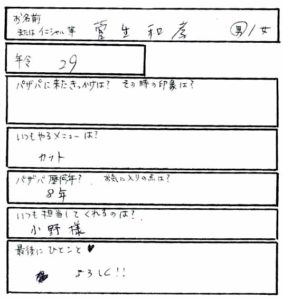 お名前
または イニシャル等 菅生和彦 男/女
年令 29
バザバに来たきっかけは? その時の印象は?
いつもやるメニューは?
カット
バザバ歴何年? お気に入りの点は?
8年
いつも担当してくれるのは?
小野様
最後にひとこと♥
よろしく!!